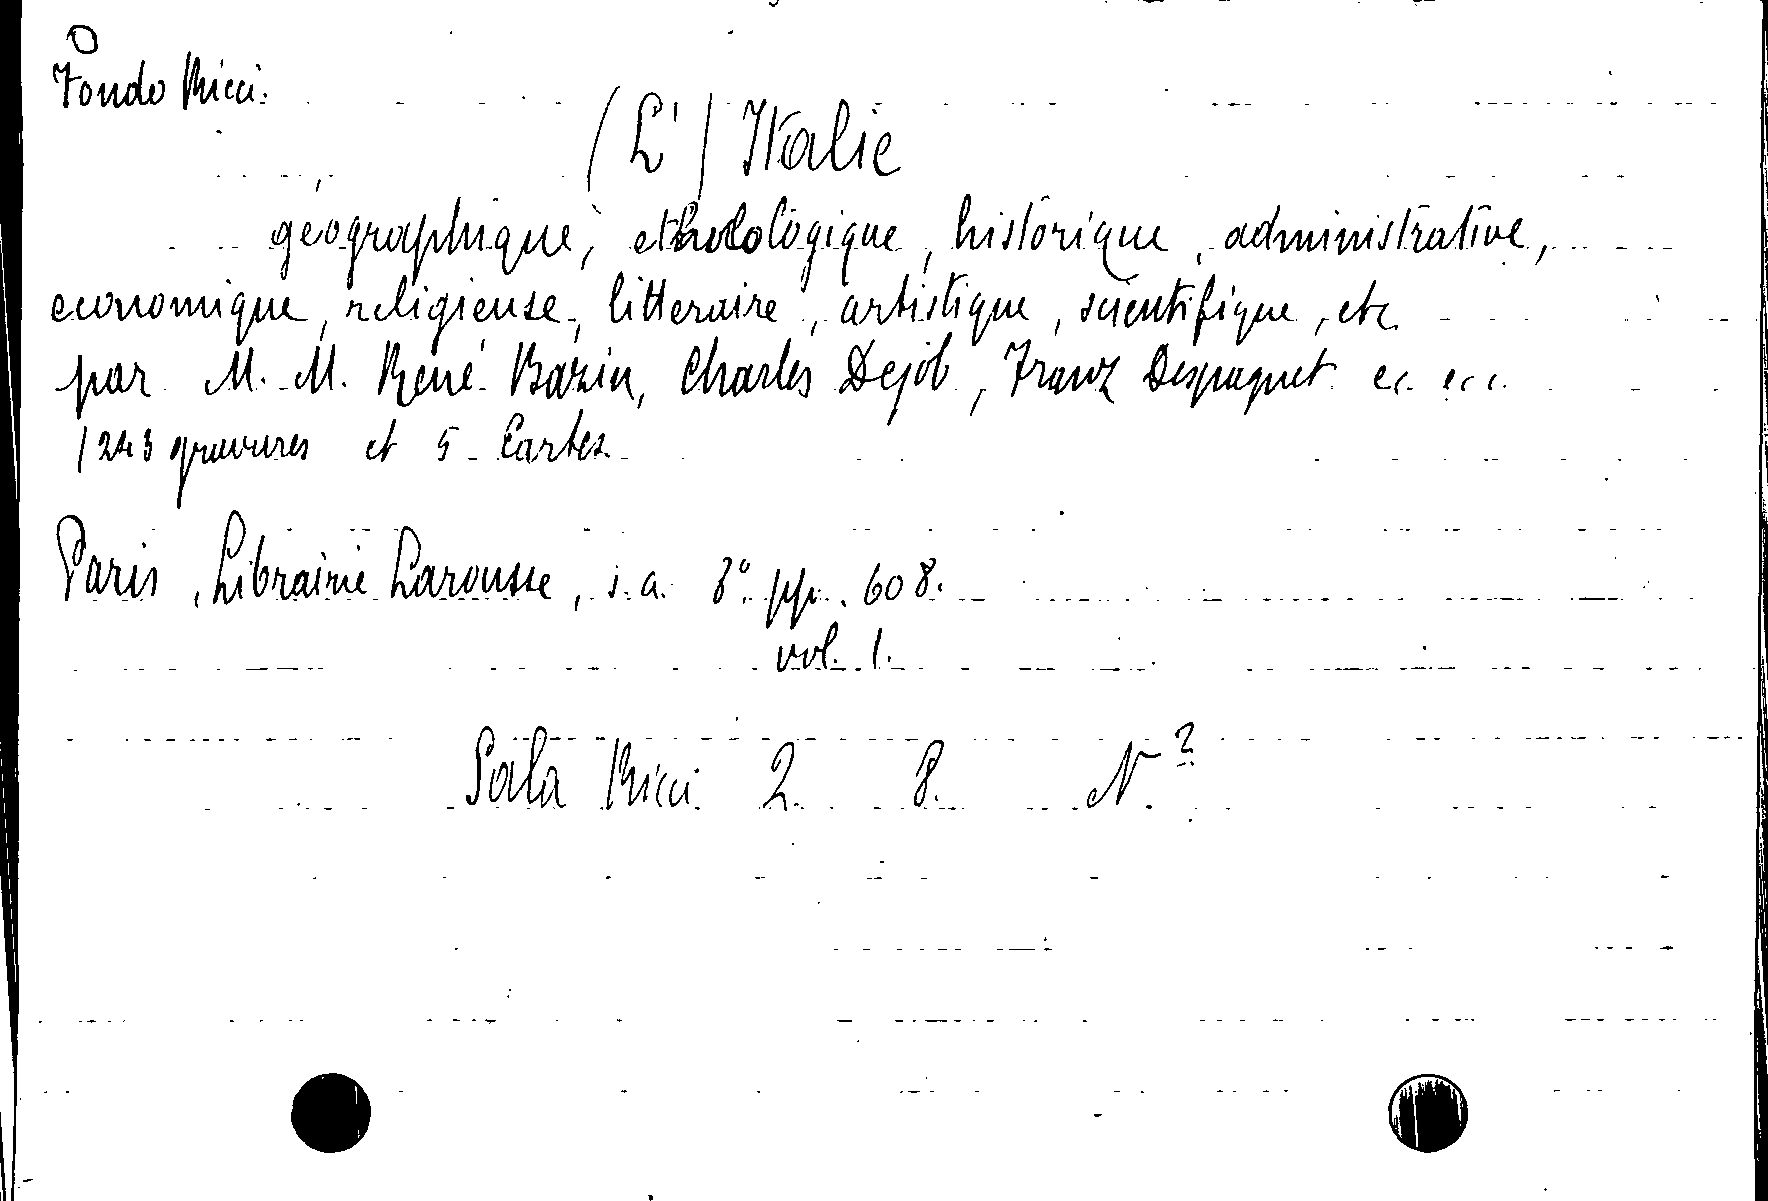 Fondo Ricci.
(L') Italie
géographique, ethnologique, historique, administrative,
economique, religieuse, litteraire, artistique, scientifique, etc.
par M. M. René Bazin, Charles Dejob, Franz Despagnet ec. ecc.
1243 gravures et 5 Cartes.
Paris, Librairie Larousse, s. a. 8° pp. 608.
vol. 1.
Sala Ricci 2. 8. N. 2